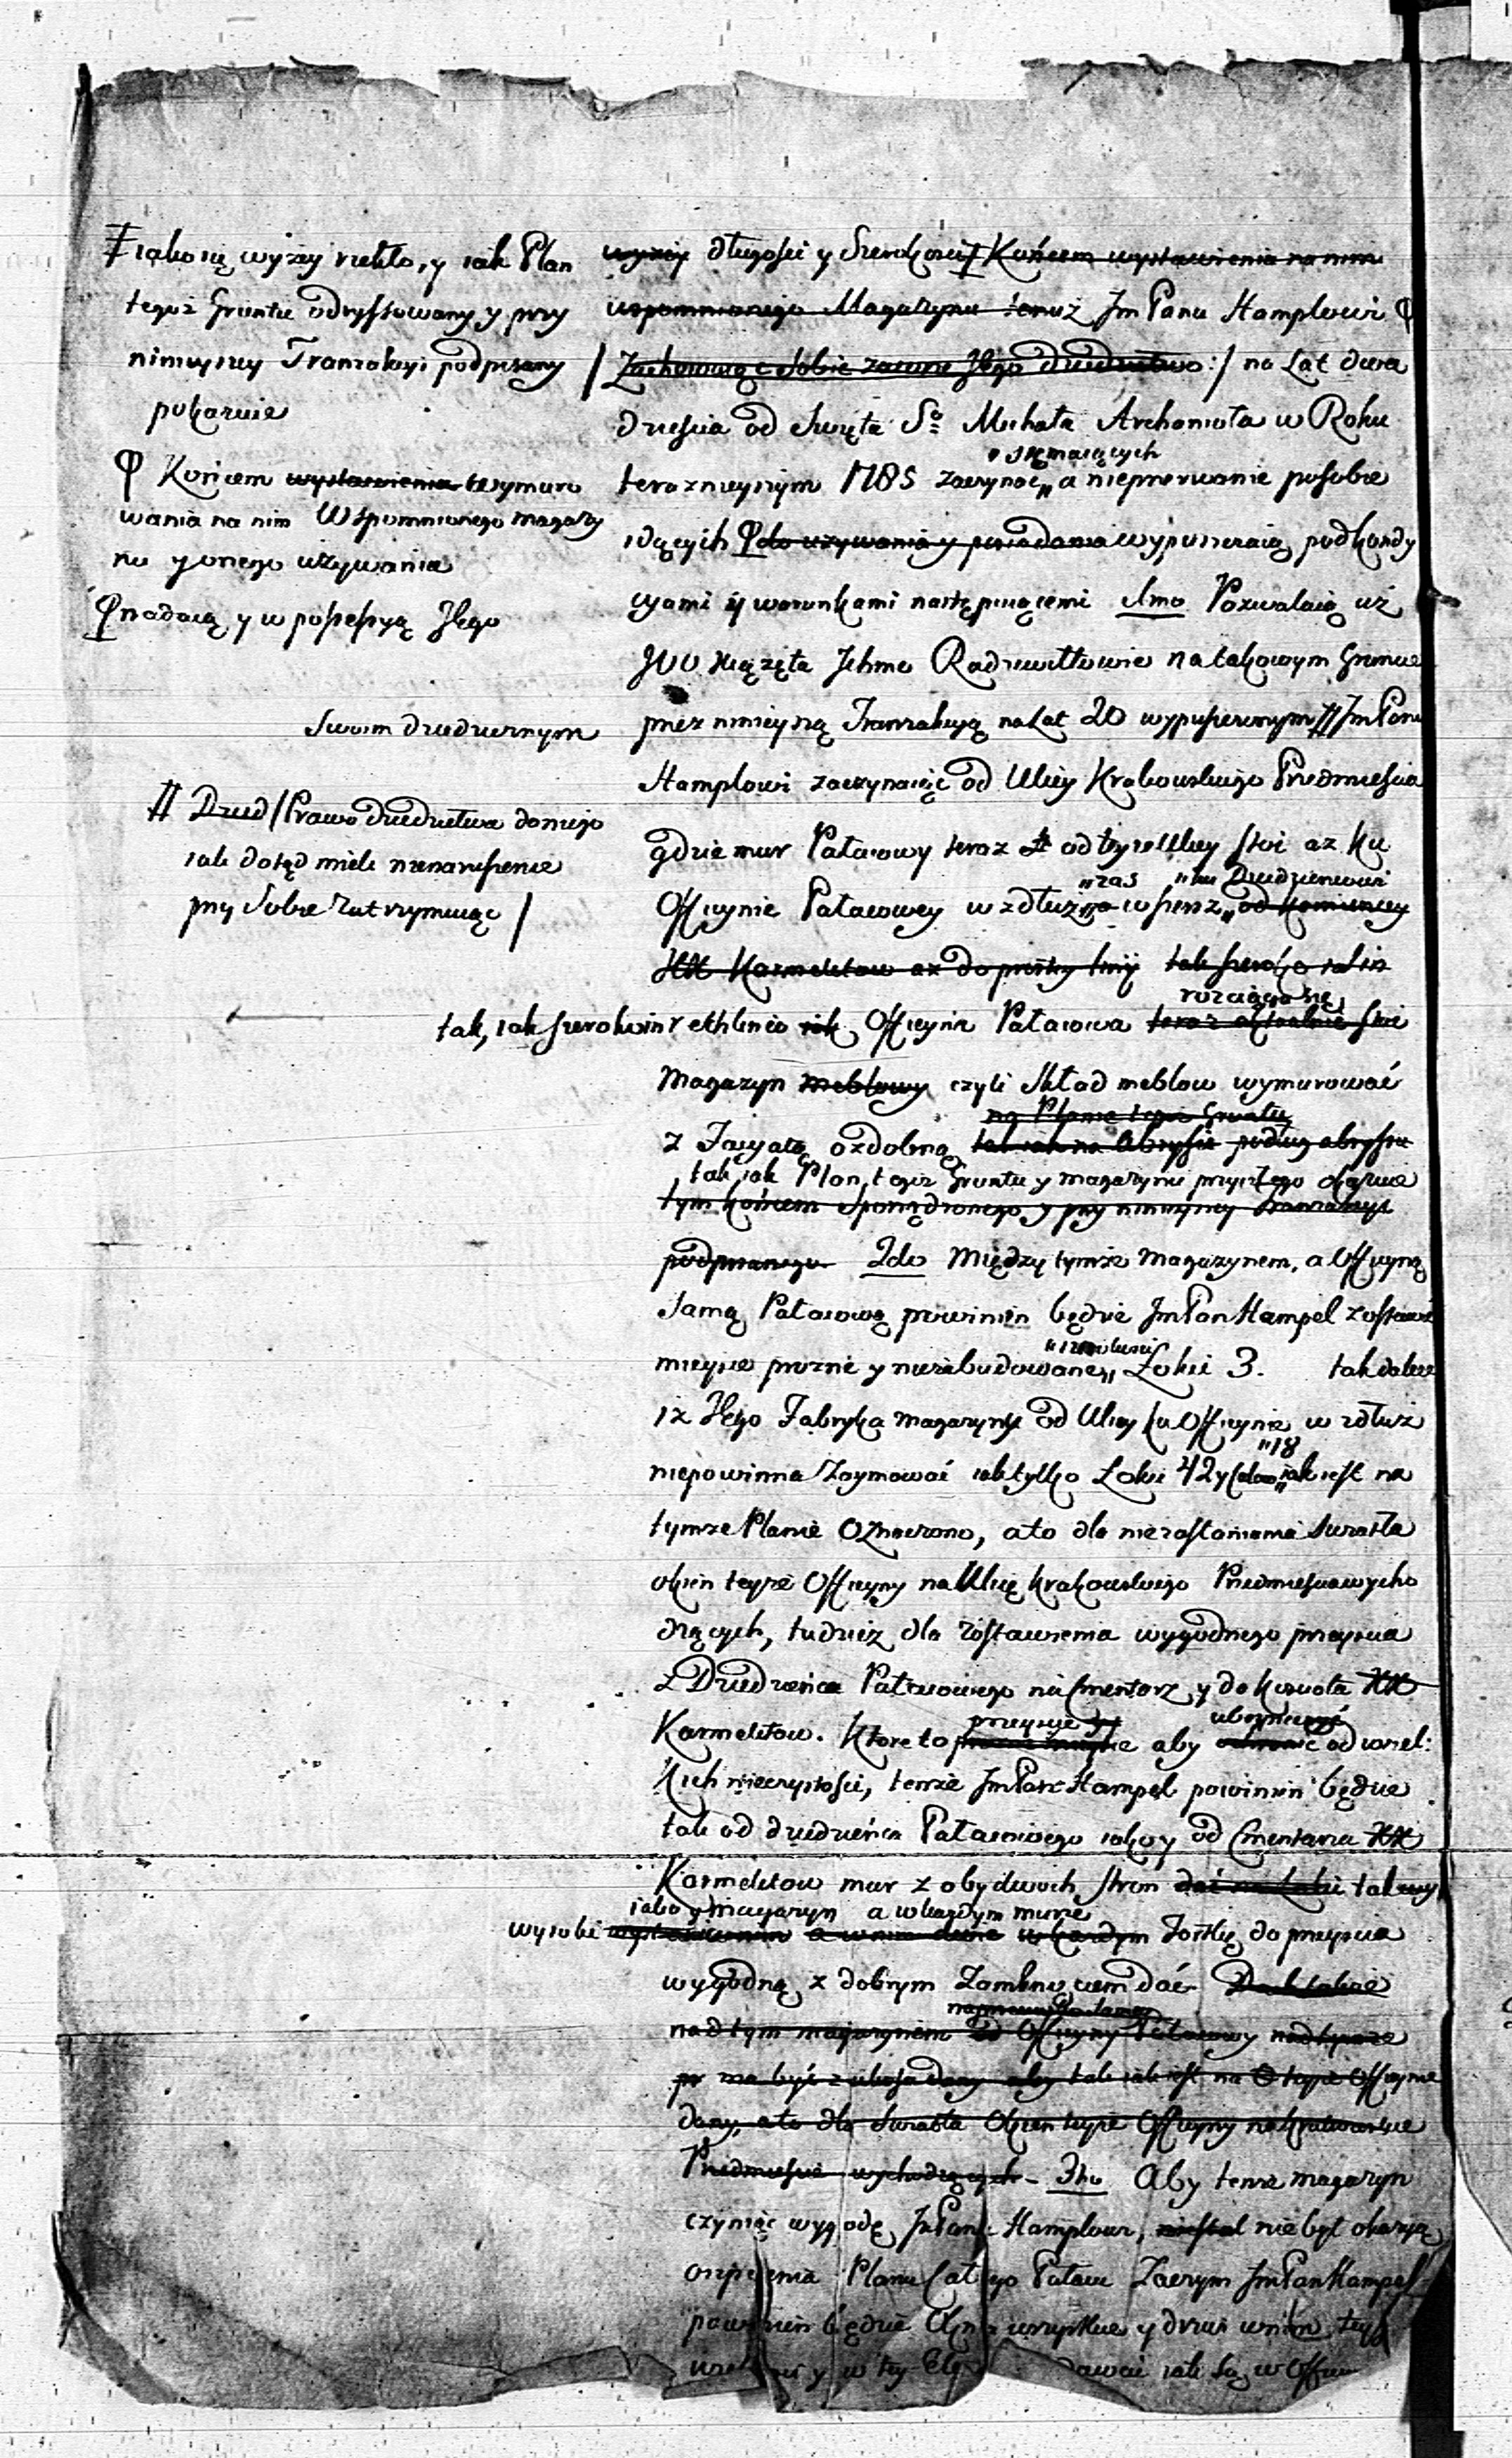 ‡ iako się wyżey rzekło, y iak Plan
tegoż Gruntu odryssowany y przy
ninieyszey Tranzakcyi podpisany
pokazuie
φ Końcem wystawienia wymuro
wania na nim Wspomnionego magazy
nu y onego używania
φ nadaią y w possessyą Jego
Swoim dziedzicznym
# Dzied / Prawo dziedzictwa do niego
iak dotąd mieli nienaruszenie
przy Sobie zatrzymuiąc /
wyżey długości y Szerokości ‡ Końcem wystawienia na nim
wspomnionego Magazynu temuż Jm Panu Hamplowi φ
/ Zachowuiąc Sobie zawsze Jego dziedzictwo :/ na Lat dwa
dzieścia od Święta Sgo Michała Archanioła w Roku
teraznieyszym 1785 zaczynać się maiących a nieprzerwanie po sobie
idących φ do używania y posiadania wypuszczaią pod kondy
cyami y warunkami następuiącemi 1mo Pozwalaią iż
JOO Xiążęta Jchmc Radziwiłłowie na takowym Gruncie
przez ninieyszą Tranzakcyą na Lat 20 wypuszczonym # Jm Panu
Hamplowi zaczynaiąc od Ulicy Krakowskiego Przedmieścia
gdzie mur Pałacowy teraz od teyże Ulicy stoi aż ku
"zas "ku Dziedzieńcowi
Officynie Pałacowey w zdłuż a w szerz od Kamienicy
XX Karmelitow aż do prostey linii tak szeroko iak iest
rozciąga się
tak, iak szeroko wrethlinio iak Officyna Pałacowa teraz aktualnie stoi
Magazyn meblowy czyli Skład meblow wymurować
na Planie tegoż Gruntu
z Facyatą ozdobną tak iak na Abryssie podług abryssu
tak iak Plan tegoż Gruntu y magazynu przyszłego okazuie
tym końcem Sporządzonego y przy ninieyszey Tranzakcyi
podpisanego 2do Między tymże Magazynem, a Officyną
Samą Pałacową powinien będzie Jm Pan Hampel zostawić
mieysce prozne y niezabudowane Łokci 3. tak dalece
iż Jego Fabryka magazynu od Ulicy ku Officynie w zdłuż
"18
niepowinna Zaymować iak tylko Łokci 42 y calow iak iest na
tymże Planie Oznaczono, a to dla niezasłonienia Swiatła
okien teyże Officyny na Ulicę Krakowskiego Przedmieścia wycho
dzących, tudzież dla zostawienia wygodnego przeyscia
z Dziedzieńca Pałacowego na Cmentarz y do kościoła XX
przeyscie ubezpieczyć
Karmelitow. Ktore to prozne mieysce aby ochronić od wszel:
kich nieczystości, tenże Jm Pan Hampel powinien będzie
tak od dziedzieńca Pałacowego iako y od Cmentarza XX
Karmelitow mur z obydwoch stron dać na takii takowy
iako y magazyn a w każdym murze
wysoki wystawionin a w nim drzwi w każdym Fortkę do przeyscia
wygodną z dobrym Zamknięciem dać. Dach także
nad tym magazynem od Officyny Pałacowey nad tymże
pr ma być z ukosa dany aby tak iak iest na teyże Officynie
dany, a to dla Swiatła Okien teyże Officyny na Krakowskie
Przedmieście wychodzących - 3tio Aby tenże magazyn
czyniąc wygodę Jm Panu Hamplowi, niestal nie był okazyą
oszpecenia Planu całego Pałacu Zaczym Jm Pan Hampel
powinien będzie Okna wszystkie y drzwi w nim tey
y w tey dawać iak są w Officynie